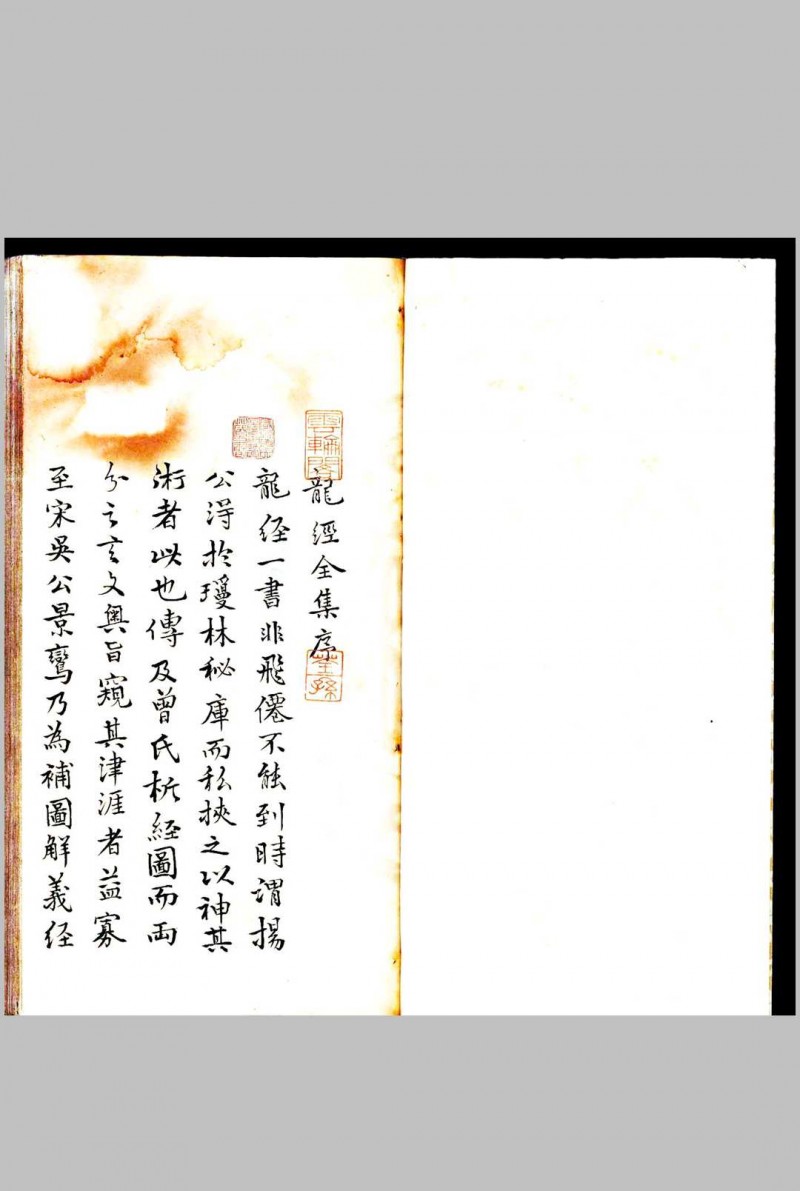 龍經全集序
龍経一書非飛僊不能到時謂揚
公淂扵瓊林秘庫而私挾之以神其
術者此也傳及曾氏析経圖而兩
分之言文奥旨窺其津涯者益寡
至宋吳公景鸞乃為補圖解義経
雲輪閣
荃孫